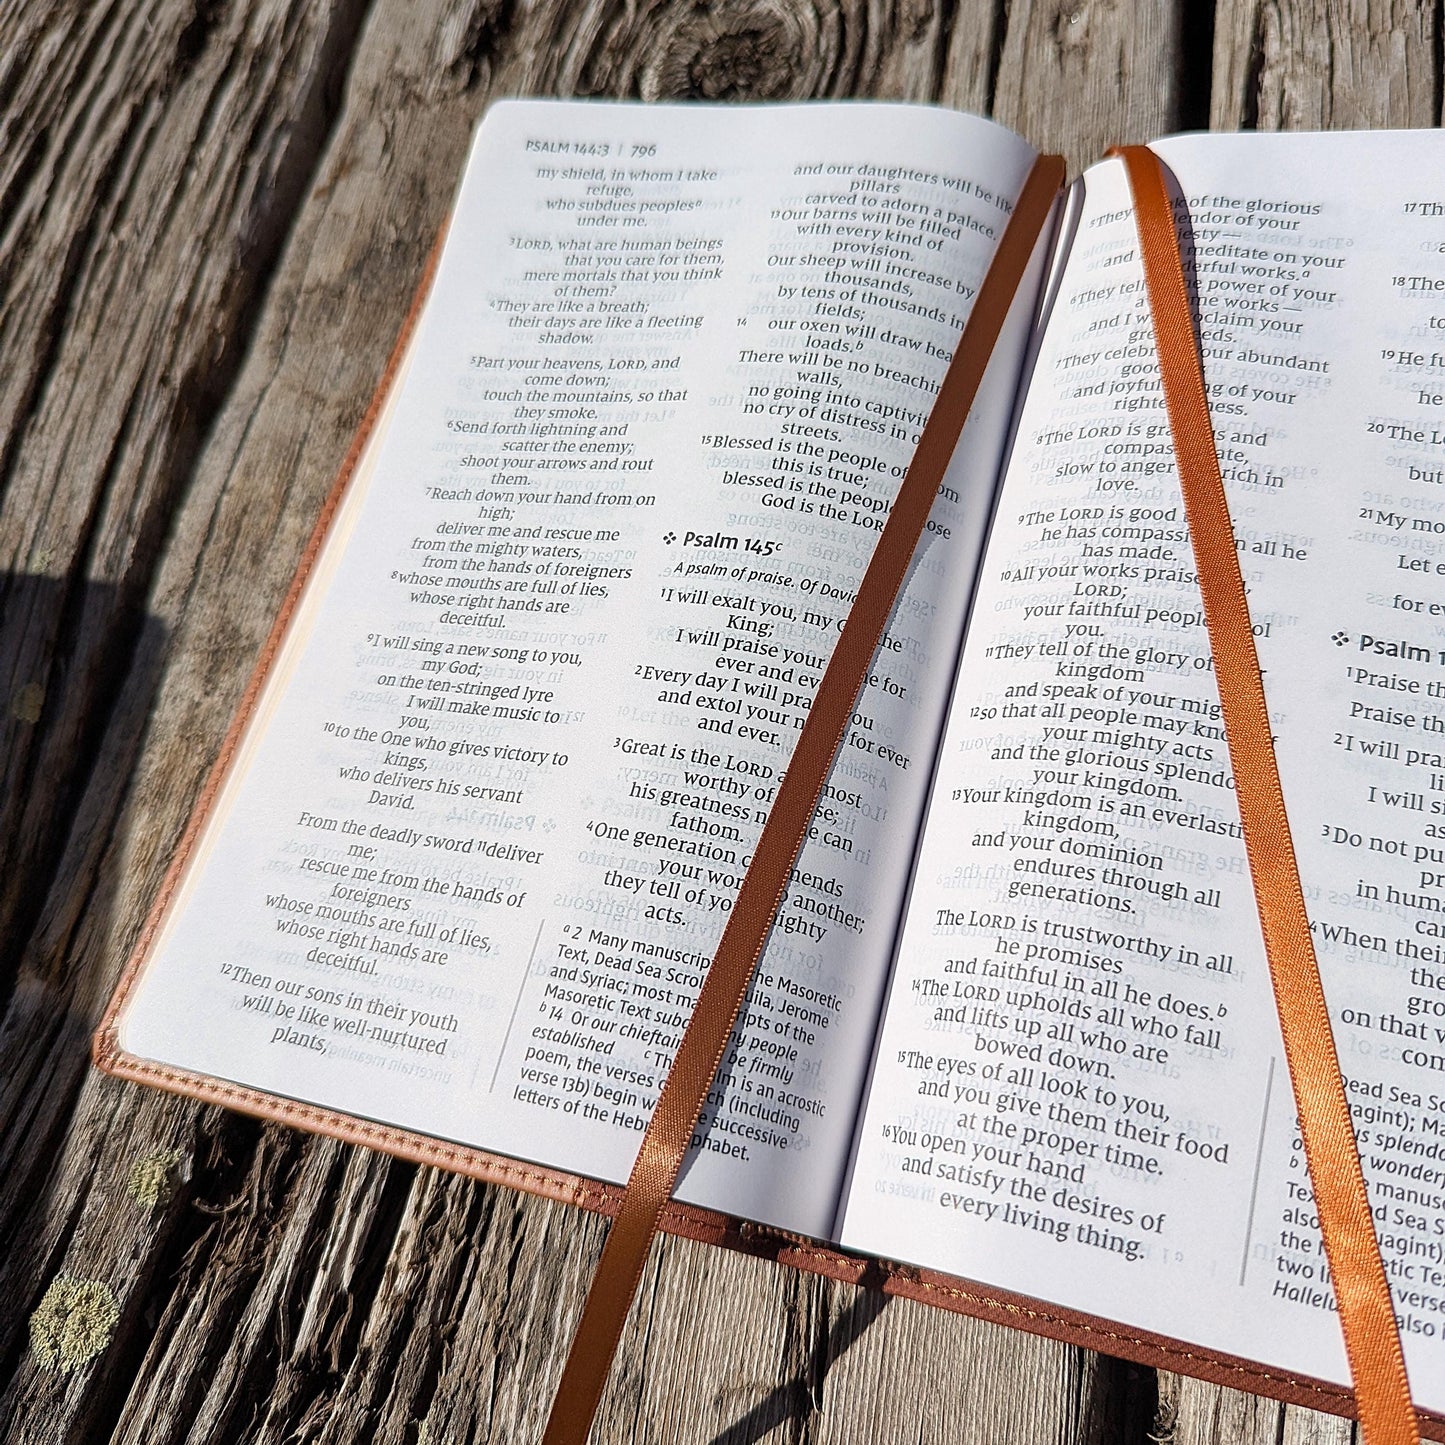 PSALM 144:3 | 796
my shield, in whom I take
refuge,
who subdues peoples a
under me.
3 LORD, what are human beings
that you care for them,
mere mortals that you think
of them?
4 They are like a breath;
their days are like a fleeting
shadow.
5 Part your heavens, LORD, and
come down;
touch the mountains, so that
they smoke.
6 Send forth lightning and
scatter the enemy;
shoot your arrows and rout
them.
7 Reach down your hand from on
high;
deliver me and rescue me
from the mighty waters,
from the hands of foreigners
8 whose mouths are full of lies,
whose right hands are
deceitful.
9 I will sing a new song to you,
my God;
on the ten-stringed lyre
I will make music to
you,
10 to the One who gives victory to
kings,
who delivers his servant
David.
From the deadly sword 11 deliver
me;
rescue me from the hands of
foreigners
whose mouths are full of lies,
whose right hands are
deceitful.
12 Then our sons in their youth
will be like well-nurtured
plants,
and our daughters will be
pillars
carved to adorn a palace.
13 Our barns will be filled
with every kind of
provision.
Our sheep will increase by
thousands,
by tens of thousands in
fields;
14 our oxen will draw
loads. b
There will be no
walls,
no going into
no cry of distress in
streets.
15 Blessed is the people of
this is true;
blessed is the
God is the
❖ Psalm 145 c
A psalm of praise. Of
1 I will exalt you, my the
King;
I will praise your
ever and for
2 Every day I will you
and extol your for ever
and ever.
3 Great is the LORD most
worthy of
his greatness can
fathom.
4 One generation
your to another;
they tell of
acts.
a 2 Many manuscripts the Masoretic
Text, Dead Sea Jerome
and Syriac; most of the
Masoretic Text people
b 14 Or our be firmly
established c is an acrostic
poem, the verses (including
verse 13b) begin successive
letters of the
5 They of the glorious
of your
and meditate on your
works. a
6 They tell power of your
works —
and I your
7 They your abundant
and of your
8 The LORD is and
slow to anger rich in
love.
9 The LORD is good
he has all he
has made.
10 All your works
LORD;
your faithful people
you.
11 They tell of the glory of
kingdom
and speak of your
12 so that all people may
your mighty acts
and the glorious
your kingdom.
13 Your kingdom is an
kingdom,
and your dominion
endures through all
generations.
The LORD is trustworthy in all
he promises
and faithful in all he does. b
14 The LORD upholds all who fall
and lifts up all who are
bowed down.
15 The eyes of all look to you,
and you give them their food
at the proper time.
16 You open your hand
and satisfy the desires of
every living thing.
17
18 The
19 He
he
20 The
but
21 My
Let
for
❖ Psalm
1 Praise
Praise
2 I will
I will
3 Do not
in
4 When their
on that
Dead Sea
also
the
two